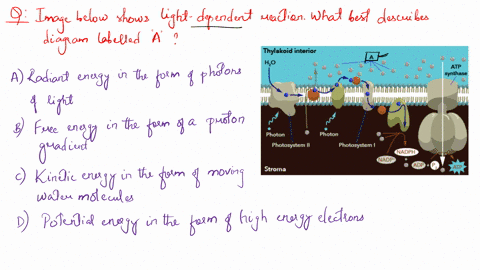 Q: Image below shows light-dependent reaction. What best describes
diagram labelled 'A' ?
A) Radiant energy in the form of photons
of light
B) Free energy in the form of a proton
gradient
C) Kinetic energy in the form of moving
water molecules
D) Potential energy in the form of high energy electrons
Thylakoid interior
A
H₂O
ATP
synthase
Photon
Photosystem II
Photon
Photosystem I
NADPH
NADP
ADP + P
Stroma